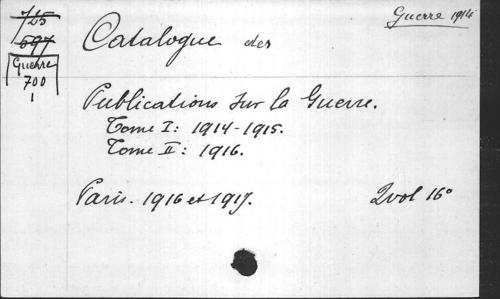 725
697
Guerre
700
1
Guerre 1914
Catalogue des
Publications sur la Guerre.
Tome I: 1914-1915.
Tome II: 1916.
Paris. 1916 et 1917.
2 vol 16°